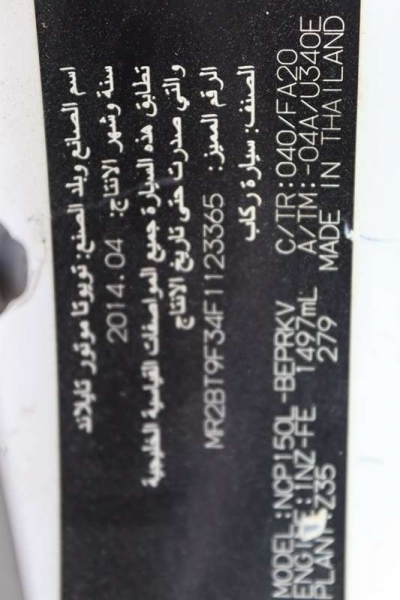 اسم الصانع وبلد الصنع: تويوتا موتور تايلاند
سنة وشهر الانتاج: 2014.04
تطابق هذه السيارة جميع المواصفات القياسية الخليجية
والتي صدرت حتى تاريخ الانتاج
الرقم المميز: MR2BT9F34F1123365
الصنف: سيارة ركاب
MODEL:NCP150L-BEPRKV C/TR:040/FA20
ENGINE:1NZ-FE 1497mL A/TM:-04A/U340E
PLANT: Z35 279 MADE IN THAILAND